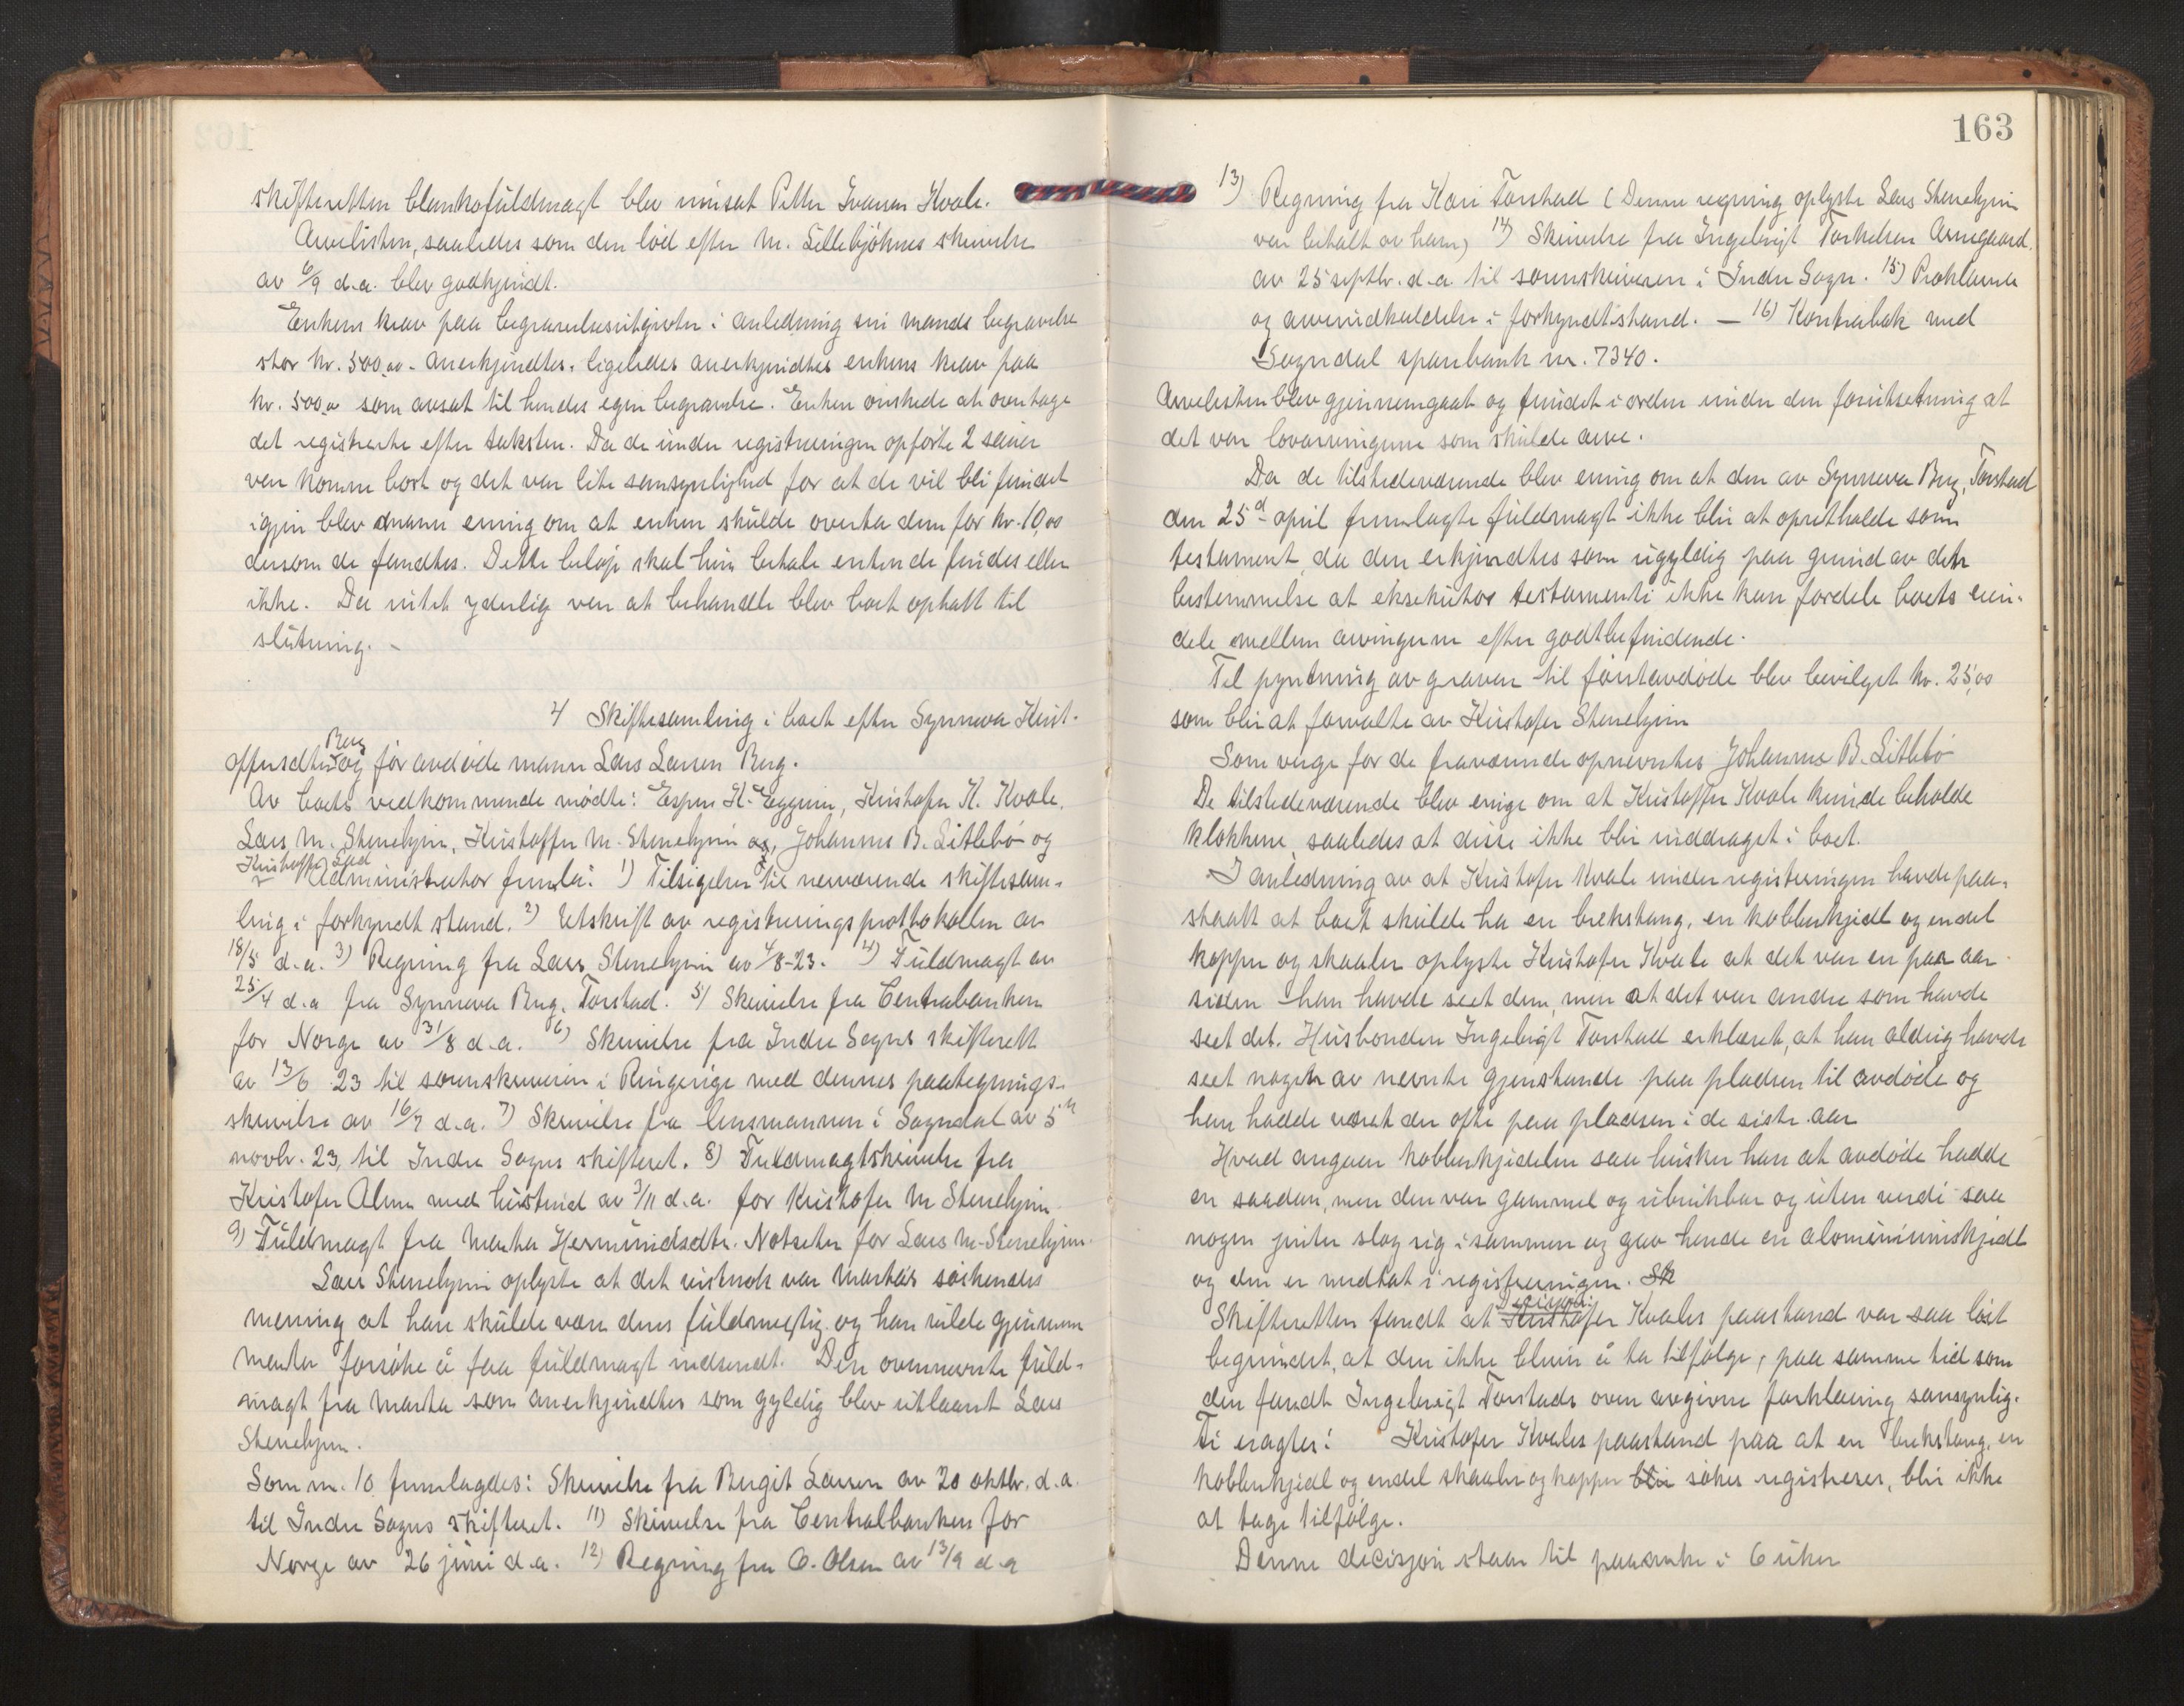 skifteretten blankofuldmagt blev innsat Petter Ivarsen Kvale.
Arvelisten, saaledes som den lød efter M. Lillebjöhnes skrivelse
av 6/9 d.a. blev godkjendt.
Enkens krav paa begravelsesutgivter i anledning sin mands begravelse
stor kr. 500,00 - anerkjendtes. ligeledes anerkjendtes enkens krav paa
kr. 500,00 som avsat til hendes egen begravelse. Enken ønskede at overtage
det registrerte efter taksten. Da de under registreringen opførte 2 sauer
var komne bort og det var lite sansynlighed for at de vil bli fundet
igjen blev man enig om at enken skulde overta dem for kr. 10,00
dersom de fandtes. Dette beløp skal hun betale enten de findes eller
ikke. Da intet yderlig var at behandle blev boet ophatt til
slutning. -
4 Skiftesamling i boet efter Synneva Krist-
offersdtr Berg og før avdøde mann Lars Larsen Berg.
Av boets vedkommende mødte: Espen K. Eggum, Kristofer K. Kvale,
Lars M. Stenehjem, Kristoffer M. Stenehjem og, Johannes B. Litlebø og
Kristoffer
Administrator fremla: 1) Tilsigelser til nerværende skiftesam-
ling i forkyndt stand. 2) Utskrift av registreringsprottokollen av
18/5 d.a. 3) Regning fra Lars Stenehjem av 4/8-23. 4) Fuldmagt av
25/4 d.a fra Synneva Berg, Torstad. 5) Skrivelse fra Centralbanken
for Norge av 31/8 d.a. 6) Skrivelse fra Indre Sogns skifterett
av 13/6 23 til sorenskriveren i Ringerige med dennes paategnings-
skrivelse av 16/7 d.a. 7) Skrivelse fra lensmannen i Sogndal av 5te
novbr. 23, til Indre Sogns skifteret. 8) Fuldmagtskrivelse fra
Kristofer Alme med hustrud av 3/11 d.a. for Kristofer M Stenehjem.
9) Fuldmagt fra Marta Hermundsdtr. Notseter for Lars M. Stenehjem.
Lars Stenehjem oplyste at det vistnok var Martas søskendes
mening at han skulde være deres fuldmegtig og han vilde gjennem
Marta forsøke å faa fuldmagt indsendt. Den ovennevnte fuld-
magt fra Marta som anerkjendtes som gyldig blev utlaant Lars
Stenehjem.
Som nr. 10 fremlagdes: Skrivelse fra Bergit Larsen av 20 oktbr. d.a.
til Indre Sogns skifteret. 11) Skrivelse fra Centralbanken for
Norge av 26 juni d.a. 12) Regning fra O. Olsen av 13/9 d.a
163
13) Regning fra Kari Torstad (Denne regning oplyste Lars Stenehjem
var betalt av ham) 14) Skrivelse fra Ingebrigt Torkelsen Arnegaard
av 25 septbr. d.a. til sorenskriveren i Indre Sogn. 15) Proklama
og arveindkaldelse i forkyndtstand. — 16) Kontrabok med
Sogndal sparebank nr. 7340.
Arvelisten blev gjennemgaat og fundet i orden under den forutsetning at
det var lovarvingene som skulde arve.
Da de tilstedeværende blev enig om at den av Synneva Berg, Torstad
den 25d april fremlagte fuldmagt ikke blir at opretholde som
testament, da den erkjendtes som ugyldig paa grund av dets
bestemmelse at eksekutor testamenti ikke kan fordele boets eien-
dele mellem arvingerne efter godtbefindende.
Til pyntning av graven til førstavdøde blev bevilget kr. 25,00
som blir at forvalte av Kristofer Stenehjem
Som verge for de fraværende opnevntes Johannes B. Litlebø
De tilstedeværende blev enige om at Kristoffer Kvale kunde beholde
klokkene, saaledes at disse ikke blir inddraget i boet.
I anledning av at Kristofer Kvale under registreringen havde paa-
staatt at boet skulde ha en brekstang, en kobberkjedl og endel
kopper og skaaler oplyste Kristofer Kvale at det var en paa aar
siden han havde seet dem, men at det var andre som havde
seet det. Husbonden Ingebrigt Torstad erklæret, at han aldrig havde
seet nogen av nevnte gjenstande paa pladsen til avdøde og
han hadde været der ofte paa pladsen i de siste aar
Hvad angaar kobberkjedelen saa husker han at avdøde hadde
en saadan, men den var gammel og ubrukbar og uten verdi saa
nogen jenter slog sig isammen og gav hende en alominiumskjedl
og den er medtat i registreringen. Sk
Decisjon:
Skifteretten fandt at Kristofer Kvales paastand var saa løst
begrundet, at den ikke blir å ta tilfølge, paa samme tid som
den fandt Ingebrigt Torstads oven avgivne forklaring sansynlig.
Ti eragtes: Kristofer Kvales paastand paa at en brekstang, en
kobberkjedl og endel skaaler og kopper blir søkes registreres, blir ikke
at tage tilfølge.
Denne decisjon staar til paaanke i 6 uker